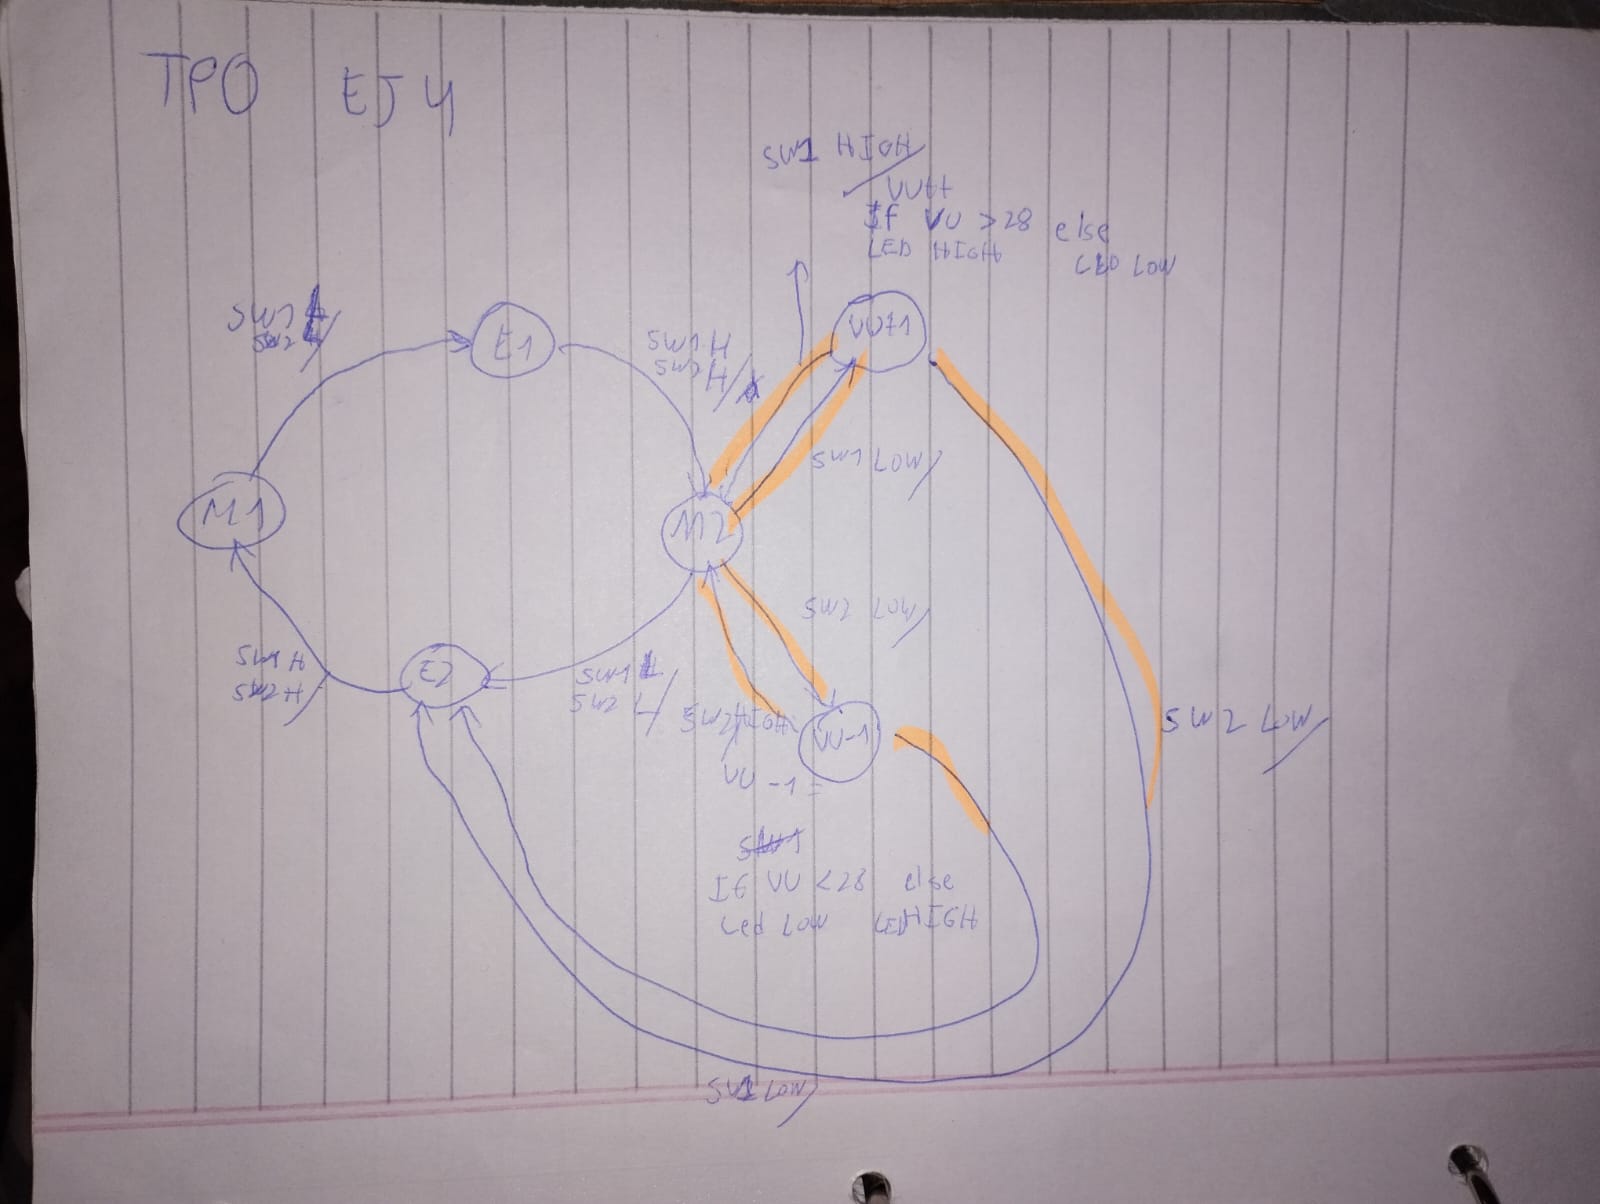 TPO EJ 4
SW1 HIGH/
VU++
If VU >28 else
LED HIGH LED LOW
SW1 L
SW2 L/
E1
SW1 H
SW2 H/
VU+1
SW1 LOW/
M1
M2
SW2 LOW/
SW1 H
SW2 H/
E2
SW1 L
SW2 L/
SW2 HIGH
VU-1
SW2 LOW/
VU -1 =
SW1
If VU <28 else
Led LOW LED HIGH
SW1 LOW/